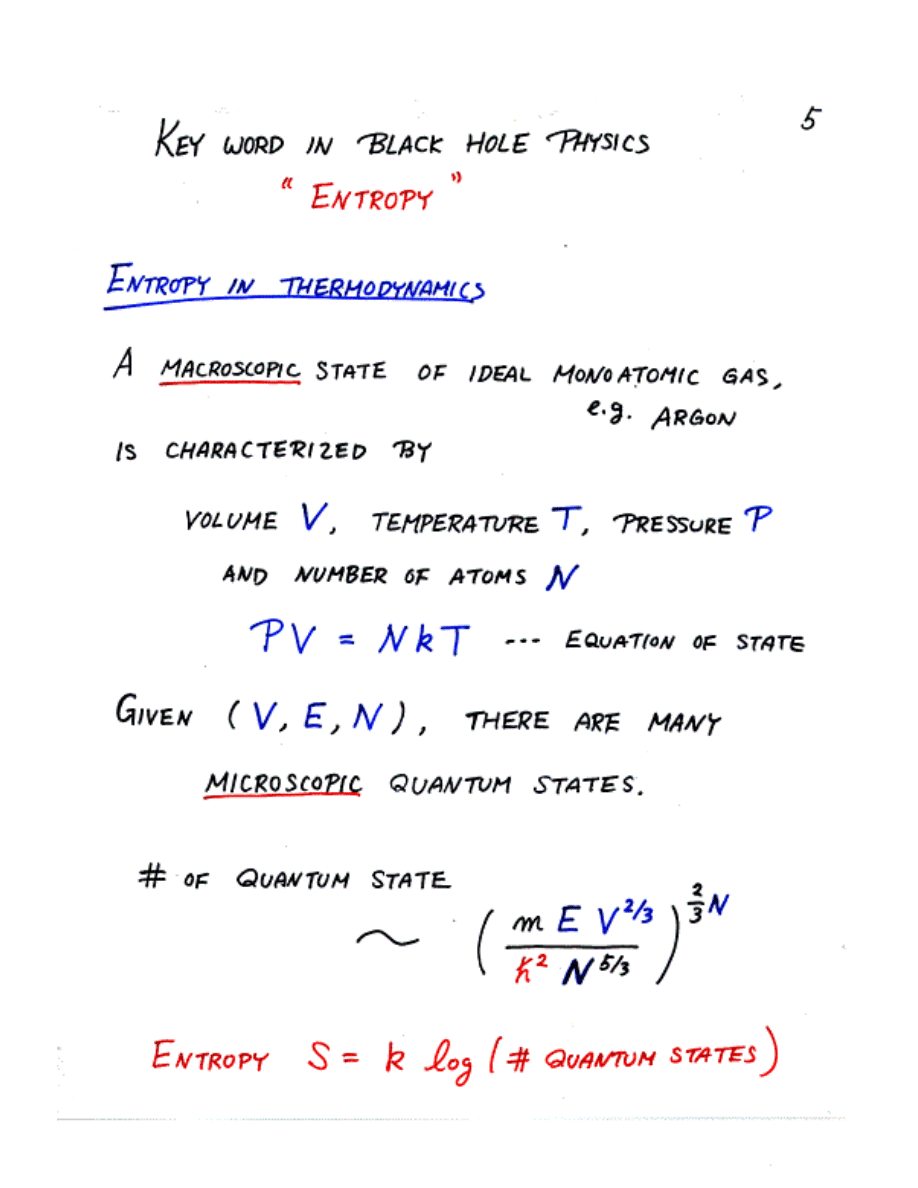 5
KEY WORD IN BLACK HOLE PHYSICS
" ENTROPY "
ENTROPY IN THERMODYNAMICS
A MACROSCOPIC STATE OF IDEAL MONOATOMIC GAS,
e.g. ARGON
IS CHARACTERIZED BY
VOLUME V, TEMPERATURE T, PRESSURE P
AND NUMBER OF ATOMS N
PV = NkT --- EQUATION OF STATE
GIVEN (V, E, N), THERE ARE MANY
MICROSCOPIC QUANTUM STATES.
# OF QUANTUM STATE
~ ( m E V^{2/3} / ħ^2 N^{5/3} )^{2/3 N}
ENTROPY S = k log (# QUANTUM STATES)